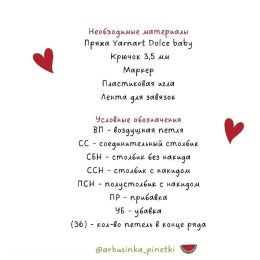 Необходимые материалы
Пряжа Yarnart Dolce baby
Крючок 3,5 мм
Маркер
Пластиковая игла
Лента для завязок
Условные обозначения
ВП - воздушная петля
СС - соединительный столбик
СБН - столбик без накида
ССН - столбик с накидом
ПСН - полустолбик с накидом
ПР - прибавка
УБ - убавка
(36) - кол-во петель в конце ряда
@arbusinka_pinetki